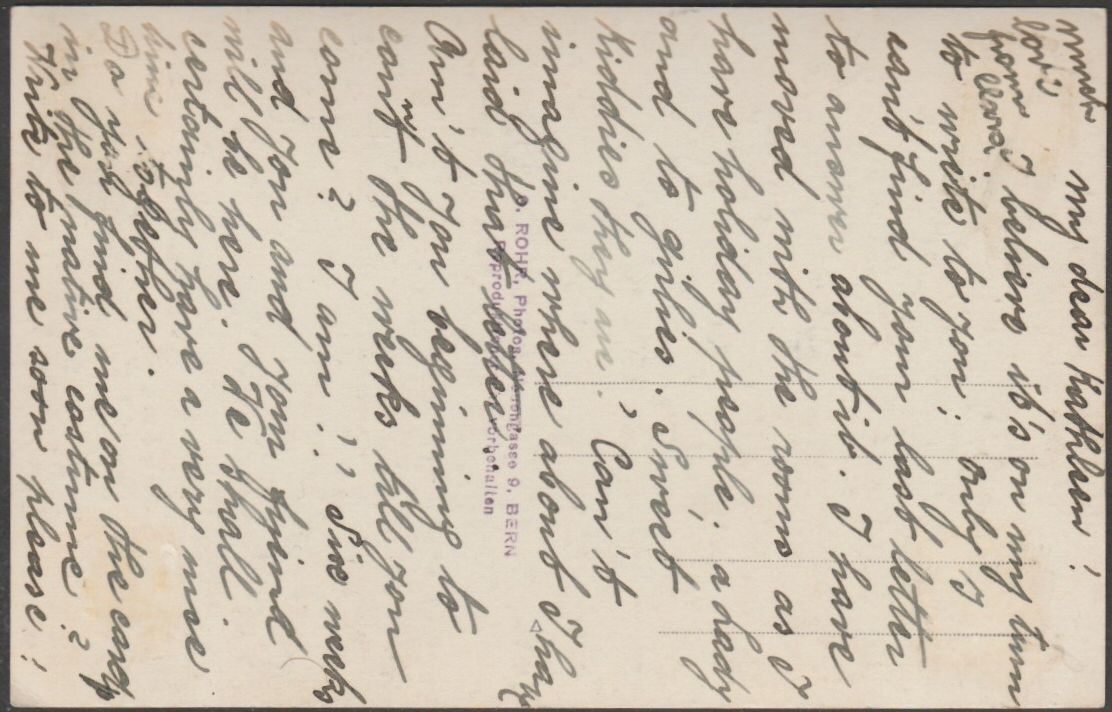 My dear Kathleen!
I believe it's on my turn
to write to you; only I
can't find your last letter
to answer about it. I have
moved with the rooms as I
have holiday people; a lady
and to girlies. Sweet
kiddies they are. Can't
immagine where about I have
laid that letter.
Arn't you beginning to
count the weeks till you
come? I am!, Six weeks
and you and your friend
will be here. We shall
certainly have a very nice
time together.
Do you find me on the card
in the native costume?
Write to me soon please!
much
love
from
ROHR, Photogr. 9, BERN
Reproduktion vorbehalten